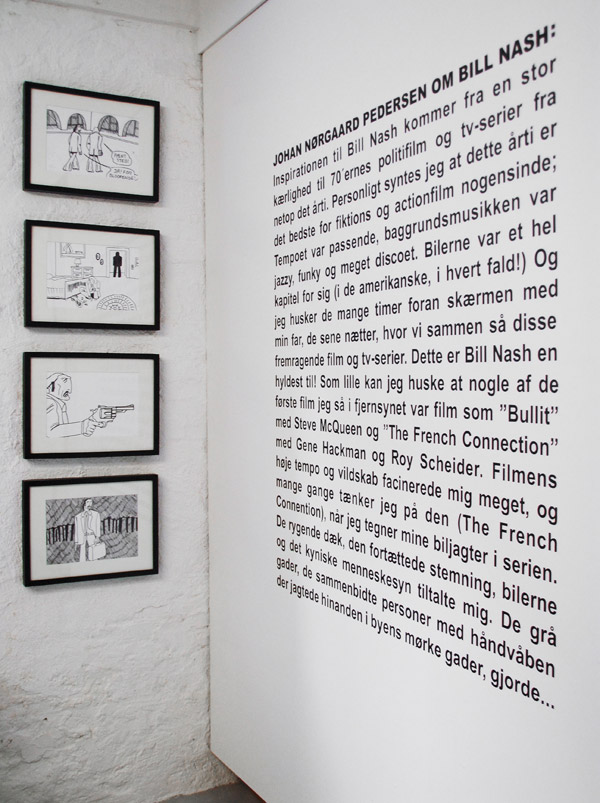 JOHAN NØRGAARD PEDERSEN OM BILL NASH:
Inspirationen til Bill Nash kommer fra en stor
kærlighed til 70´ernes politifilm og tv-serier fra
netop det årti. Personligt syntes jeg at dette årti er
det bedste for fiktions og actionfilm nogensinde;
Tempoet var passende, baggrundsmusikken var
jazzy, funky og meget discoet. Bilerne var et hel
kapitel for sig (i de amerikanske, i hvert fald!) Og
jeg husker de mange timer foran skærmen med
min far, de sene nætter, hvor vi sammen så disse
fremragende film og tv-serier. Dette er Bill Nash en
hyldest til! Som lille kan jeg huske at nogle af de
første film jeg så i fjernsynet var film som ”Bullit”
med Steve McQueen og ”The French Connection”
med Gene Hackman og Roy Scheider. Filmens
høje tempo og vildskab facinerede mig meget, og
mange gange tænker jeg på den (The French
Connention), når jeg tegner mine biljagter i serien.
De rygende dæk, den fortættede stemning, bilerne
og det kyniske menneskesyn tiltalte mig. De grå
gader, de sammenbidte personer med håndvåben
der jagtede hinanden i byens mørke gader, gjorde...